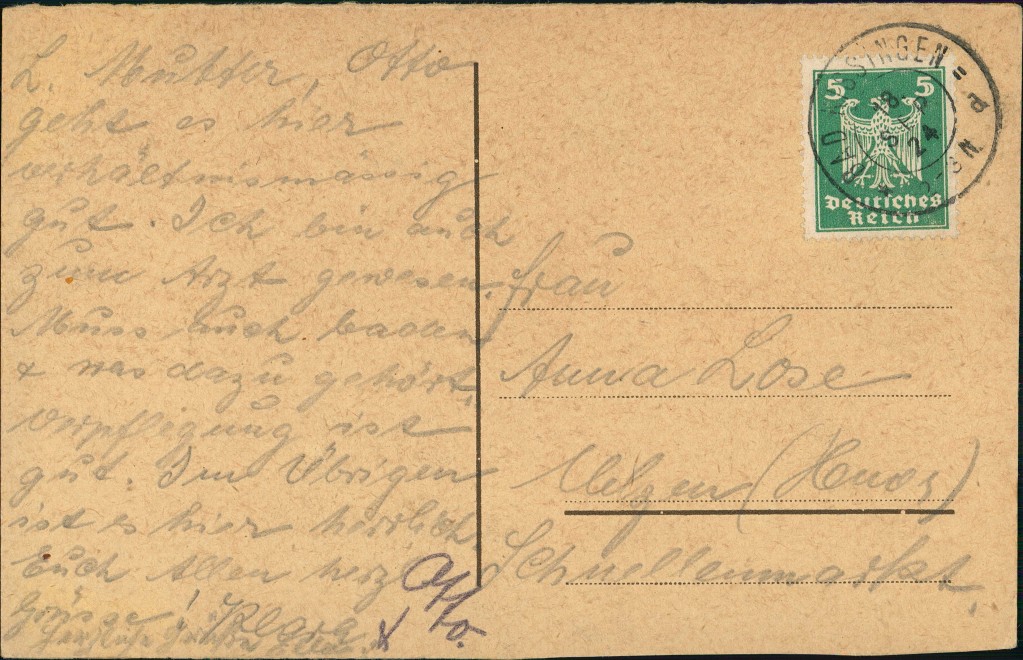 L. Mutter, Otto
geht es hier
verhältnismässig
gut. Ich bin auch
zum Arzt gewesen.
Muss auch baden
& was dazu gehört.
Verpflegung ist
gut. Im Übrigen
ist es hier herrlich.
Euch Allen herzl.
Grüsse!
Otto.
5 5
Deutsches
Reich
SSINGEN
18
24
Frau
Anna Lose
Uelzen (Hnov)
Schnellenmarkt.